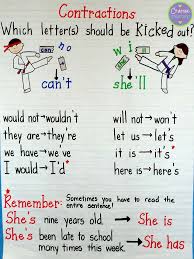 Contractions
Which letter(s) should be Kicked out?
can no
w i
can't
she'll
would not → wouldn't
they are → they're
we have → we've
I would → I'd
will not → won't
let us → let's
it is → it's
here is → here's
Remember: Sometimes you have to read the
entire sentence!
She's nine years old → She is
She's been late to school → She has
many times this week.